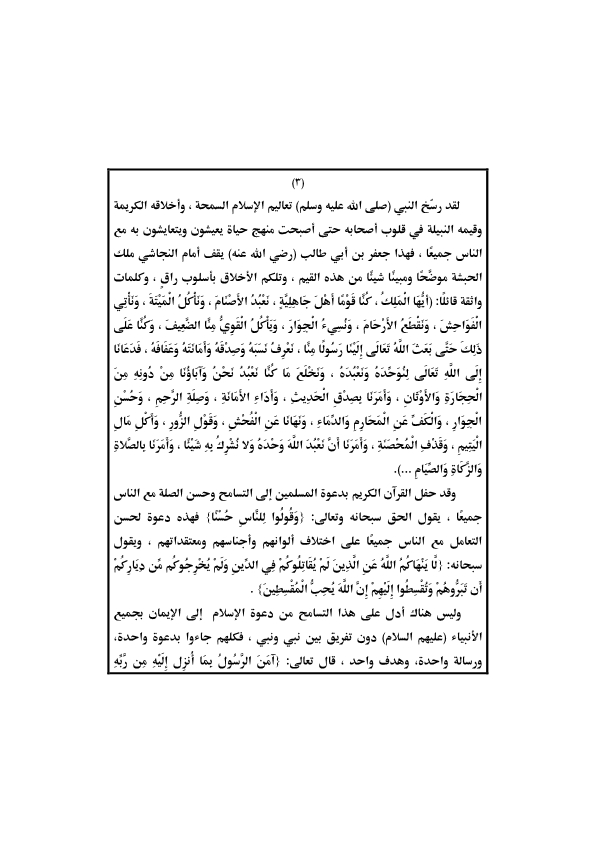 (٣)
لقد رسّخ النبي (صلى الله عليه وسلم) تعاليم الإسلام السمحة ، وأخلاقه الكريمة
وقيمه النبيلة في قلوب أصحابه حتى أصبحت منهج حياة يعيشون ويتعايشون به مع
الناس جميعًا ، فهذا جعفر بن أبي طالب (رضي الله عنه) يقف أمام النجاشي ملك
الحبشة موضَّحًا ومبينًا شيئًا من هذه القيم ، وتلكم الأخلاق بأسلوب راقٍ ، وكلمات
واثقة قائلًا: (أَيُّهَا الْمَلِكُ ، كُنَّا قَوْمًا أَهْلَ جَاهِلِيَّةٍ ، نَعْبُدُ الأَصْنَامَ ، وَنَأْكُلُ الْمَيْتَةَ ، وَنَأْتِي
الْفَوَاحِشَ ، وَنَقْطَعُ الأَرْحَامَ ، وَنُسِيءُ الْجِوَارَ ، وَيَأْكُلُ الْقَوِيُّ مِنَّا الضَّعِيفَ ، وَكُنَّا عَلَى
ذَلِكَ حَتَّى بَعَثَ اللَّهُ تَعَالَى إِلَيْنَا رَسُولًا مِنَّا ، نَعْرِفُ نَسَبَهُ وَصِدْقَهُ وَأَمَانَتَهُ وَعَفَافَهُ ، فَدَعَانَا
إِلَى اللَّهِ تَعَالَى لِنُوَحِّدَهُ وَنَعْبُدَهُ ، وَنَخْلَعَ مَا كُنَّا نَعْبُدُ نَحْنُ وَآبَاؤُنَا مِنْ دُونِهِ مِنَ
الْحِجَارَةِ وَالأَوْثَانِ ، وَأَمَرَنَا بِصِدْقِ الْحَدِيثِ ، وَأَدَاءِ الأَمَانَةِ ، وَصِلَةِ الرَّحِمِ ، وَحُسْنِ
الْجِوَارِ ، وَالْكَفِّ عَنِ الْمَحَارِمِ وَالدِّمَاءِ ، وَنَهَانَا عَنِ الْفُحْشِ ، وَقَوْلِ الزُّورِ ، وَأَكْلِ مَالِ
الْيَتِيمِ ، وَقَذْفِ الْمُحْصَنَةِ ، وَأَمَرَنَا أَنَّ نَعْبُدَ اللَّهَ وَحْدَهُ وَلا نُشْرِكُ بِهِ شَيْئًا ، وَأَمَرَنَا بِالصَّلاةِ
وَالزَّكَاةِ وَالصِّيَامِ ...).
وقد حفل القرآن الكريم بدعوة المسلمين إلى التسامح وحسن الصلة مع الناس
جميعًا ، يقول الحق سبحانه وتعالى: {وَقُولُوا لِلنَّاسِ حُسْنًا} فهذه دعوة لحسن
التعامل مع الناس جميعًا على اختلاف ألوانهم وأجناسهم ومعتقداتهم ، ويقول
سبحانه: {لَّا يَنْهَاكُمُ اللَّهُ عَنِ الَّذِينَ لَمْ يُقَاتِلُوكُمْ فِي الدِّينِ وَلَمْ يُخْرِجُوكُم مِّن دِيَارِكُمْ
أَن تَبَرُّوهُمْ وَتُقْسِطُوا إِلَيْهِمْ إِنَّ اللَّهَ يُحِبُّ الْمُقْسِطِينَ} .
وليس هناك أدل على هذا التسامح من دعوة الإسلام إلى الإيمان بجميع
الأنبياء (عليهم السلام) دون تفريق بين نبي ونبي ، فكلهم جاءوا بدعوة واحدة،
ورسالة واحدة، وهدف واحد ، قال تعالى: {آمَنَ الرَّسُولُ بِمَا أُنزِلَ إِلَيْهِ مِن رَّبِّهِ